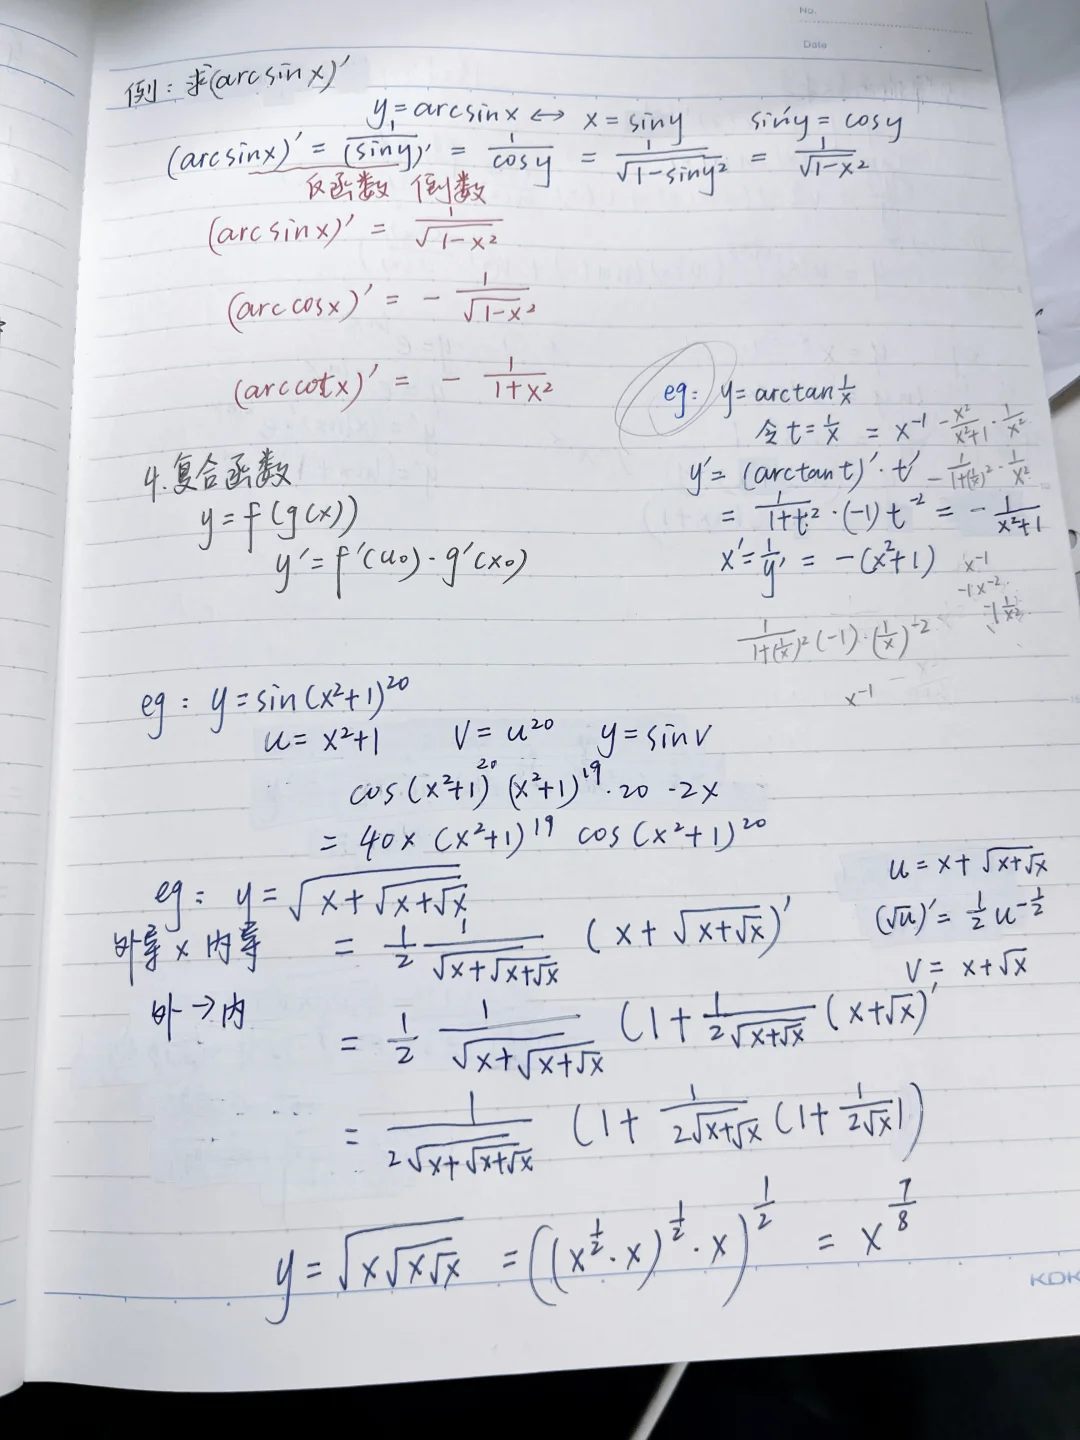 No.
Date
例：求(arcsinx)′
y=arcsinx ↔ x=siny   sin′y=cosy
(arcsinx)′ = 1/(siny)′ = 1/cosy = 1/√(1-siny²) = 1/√(1-x²)
反函数 倒数
(arcsinx)′ = 1/√(1-x²)
(arccosx)′ = - 1/√(1-x²)
(arccotx)′ = - 1/(1+x²)
eg: y=arctan 1/x
令t=1/x = x⁻¹ - x²/(x²+1) · 1/x²
y′=(arctant)′·t′ - 1/(1+(1/x)²) · 1/x²
= 1/(1+t²)·(-1)t⁻² = - 1/(x²+1)
x′=1/y′ = -(x²+1)
x⁻¹
-1x⁻²
-1 1/x²
1/(1+(1/x)²)(-1)·(1/x)⁻²
x⁻¹
4.复合函数
y=f(g(x))
y′=f′(u₀)·g′(x₀)
eg: y=sin(x²+1)²⁰
u=x²+1   v=u²⁰   y=sinv
cos(x²+1)²⁰(x²+1)¹⁹·20·2x
=40x(x²+1)¹⁹ cos(x²+1)²⁰
eg: y=√(x+√(x+√x))
u=x+√(x+√x)
(√u)′=½u^(-½)
v=x+√x
外导×内导 = 1/2 1/√(x+√(x+√x)) (x+√(x+√x))′
外→内 = 1/2 1/√(x+√(x+√x)) (1+1/(2√(x+√x))(x+√x)′
= 1/(2√(x+√(x+√x))) (1+1/(2√(x+√x))(1+1/(2√x)))
y=√(x√(x√x)) =((x^½·x)^½·x)^½ = x^(7/8)
KOK